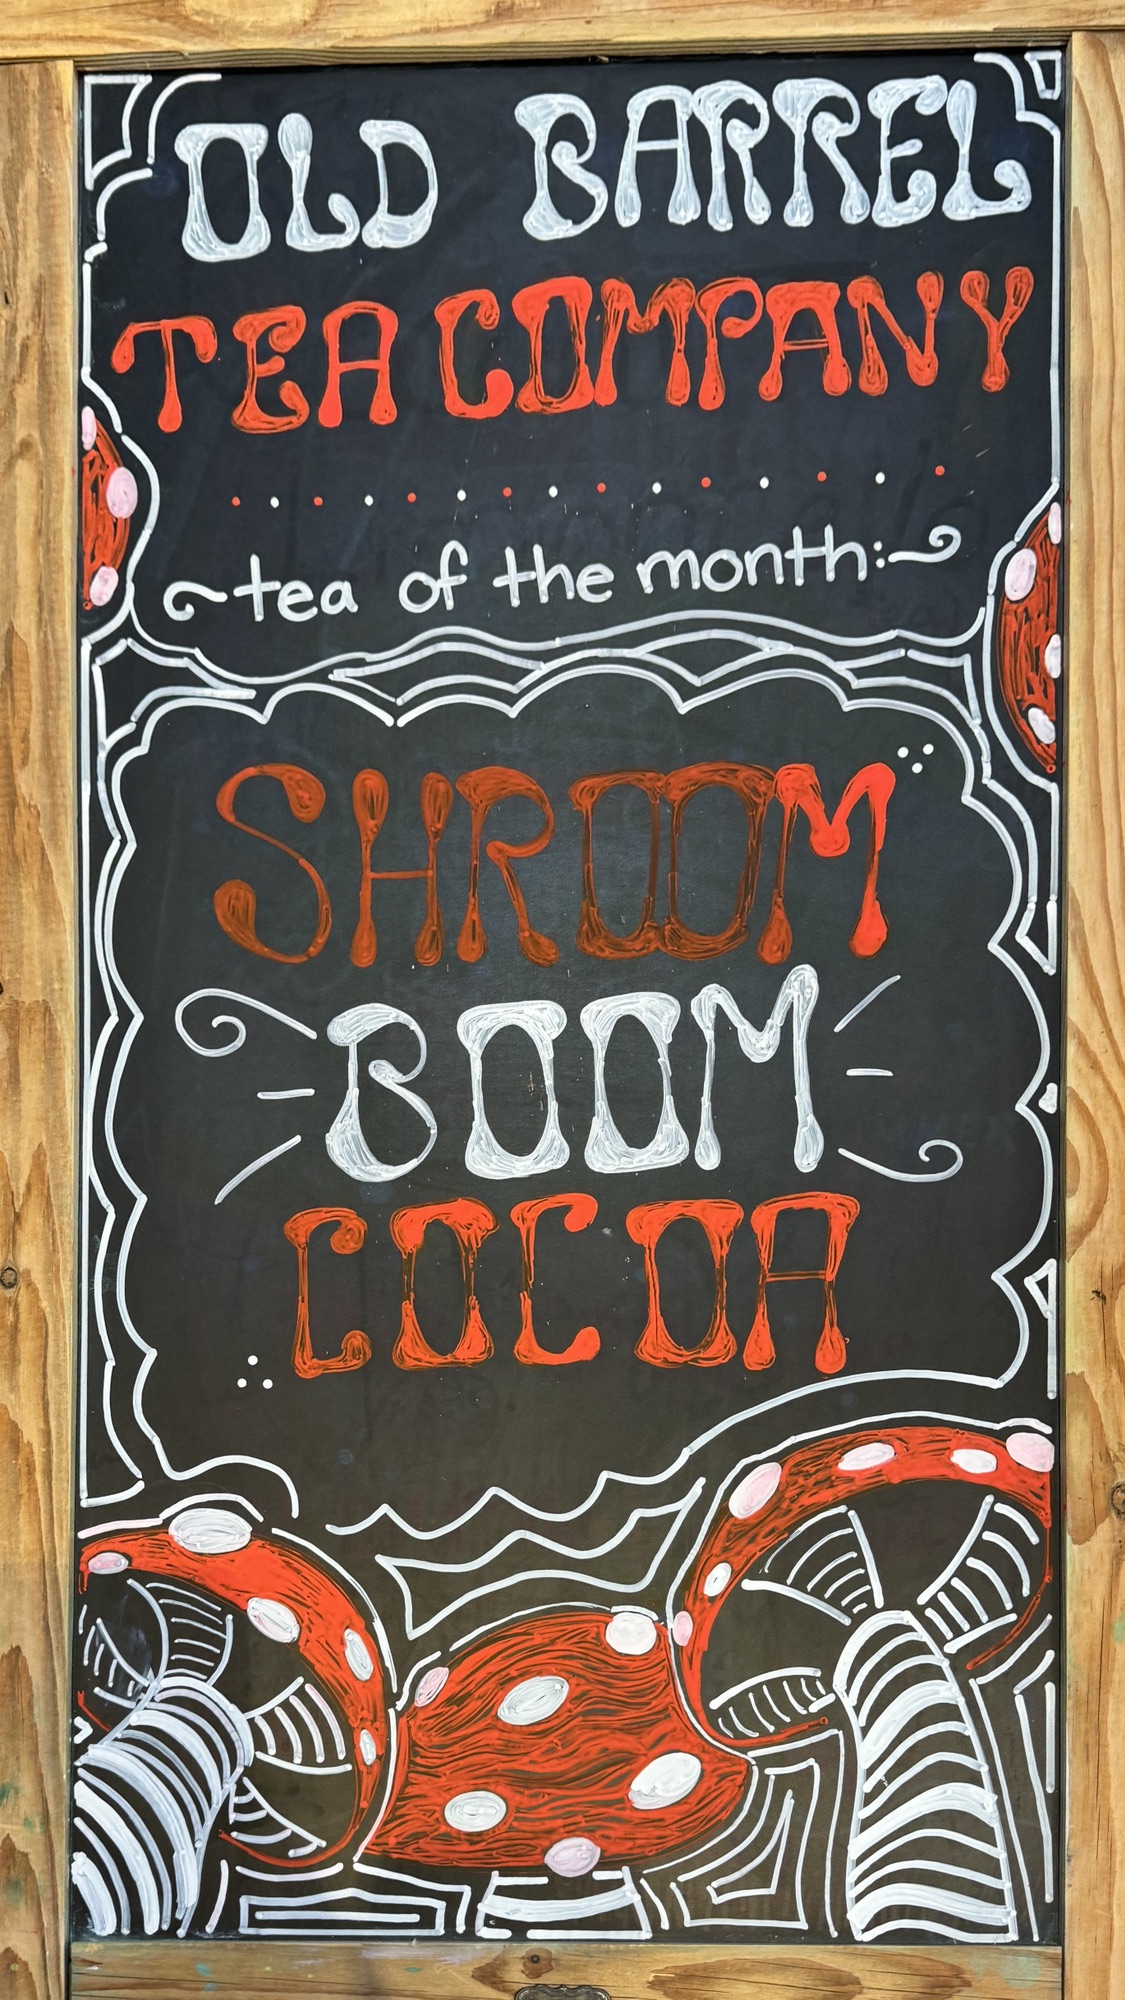 OLD BARREL
TEA COMPANY
tea of the month:
SHROOM
BOOM
COCOA